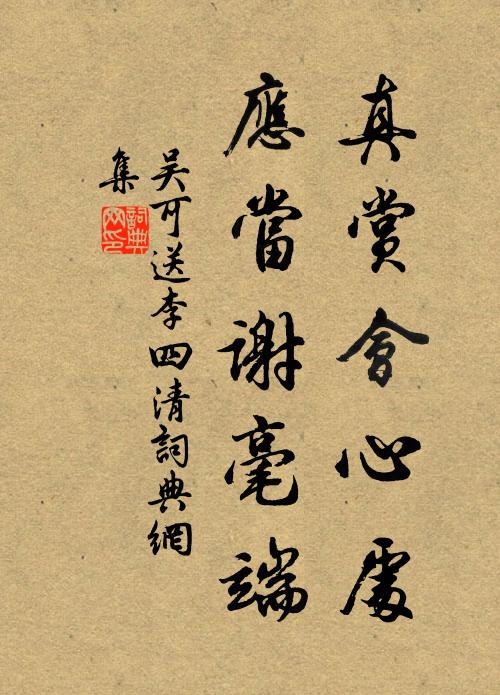 真賞會心處
應當謝毫端
吴可送李四清詞典網
集
詞典
网印